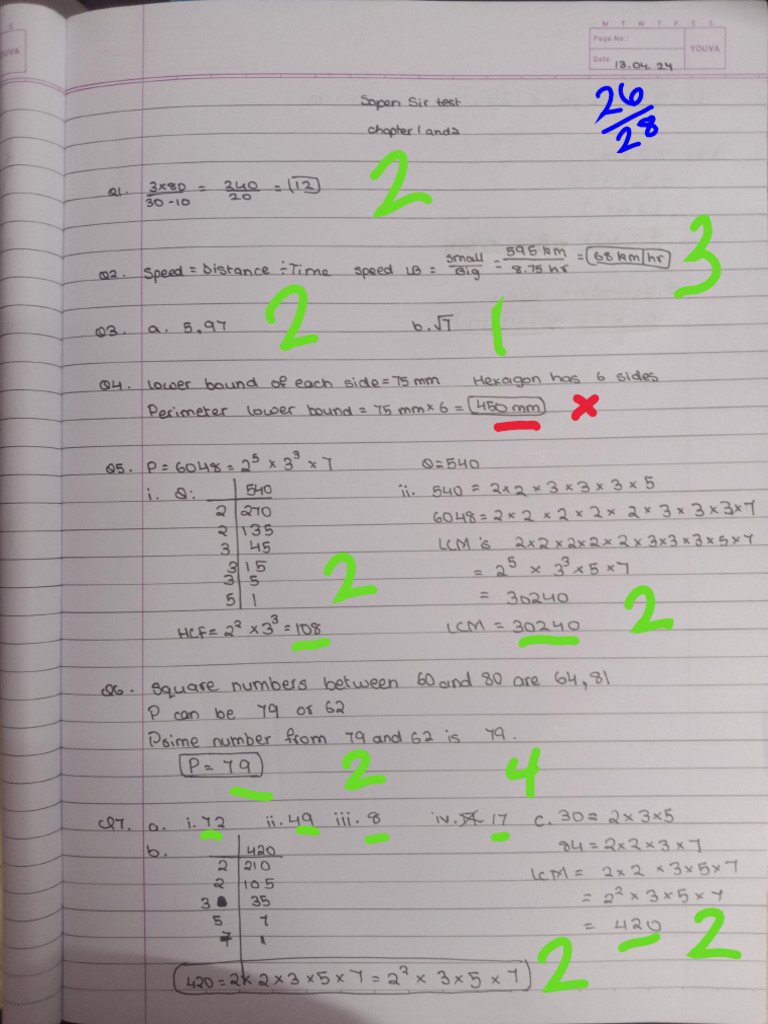 M T W T F S S
Page No.:
YOUVA
Date: 13.04.24
YOUVA
Sapan Sir test
Chapter 1 and 2
26/28
Q1. 3×80/30-10 = 240/20 = 12
2
Q2. Speed = Distance ÷ Time speed LB = small/Big = 595 km/8.75 hr = 68 km/hr
3
Q3. a. 5.97 2 b. √7 1
Q4. Lower bound of each side = 75 mm Hexagon has 6 sides
Perimeter lower bound = 75 mm × 6 = 450 mm ×
Q5. P = 6048 = 2⁵ × 3³ × 7 Q = 540
i. Q: 540
2 270
2 135
3 45
3 15
3 5
5 1
2
HCF = 2² × 3³ = 108
ii. 540 = 2×2 × 3 × 3 × 3 × 5
6048 = 2 × 2 × 2 × 2 × 2 × 3 × 3 × 3 × 7
LCM is 2×2×2×2×2×3×3×3×5×7
= 2⁵ × 3³ × 5 × 7
= 30240
LCM = 30240
2
Q6. Square numbers between 60 and 80 are 64, 81
P can be 79 or 62
Prime number from 79 and 62 is 79.
P = 79
2
4
Q7. a. i. 72 ii. 49 iii. 8 iv. 17
b. 420
2 210
2 105
3 35
5 7
7 1
420 = 2 × 2 × 3 × 5 × 7 = 2² × 3 × 5 × 7
2
c. 30 = 2 × 3 × 5
84 = 2 × 2 × 3 × 7
LCM = 2×2 × 3×5×7
= 2² × 3 × 5 × 7
= 420
2